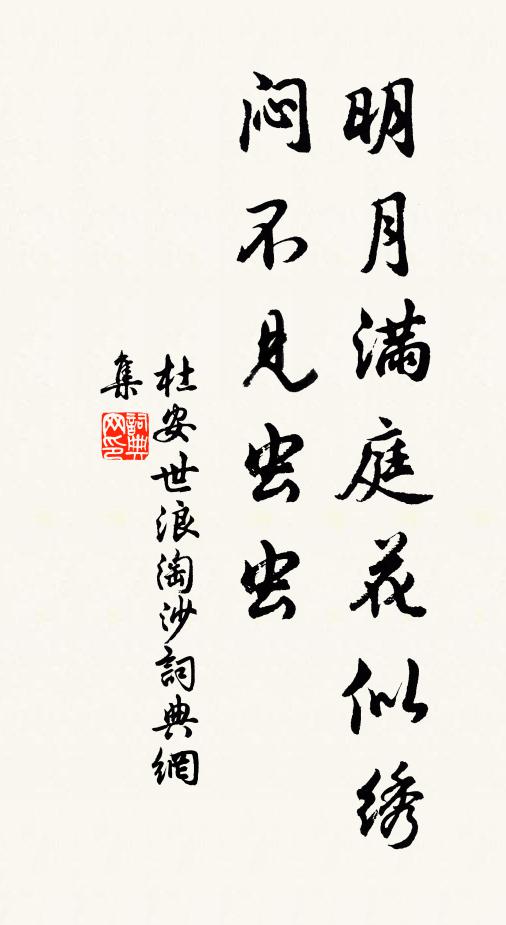 明月满庭花似绣
闷不见虫虫
杜安世浪淘沙詞典網
集
詞典
网印